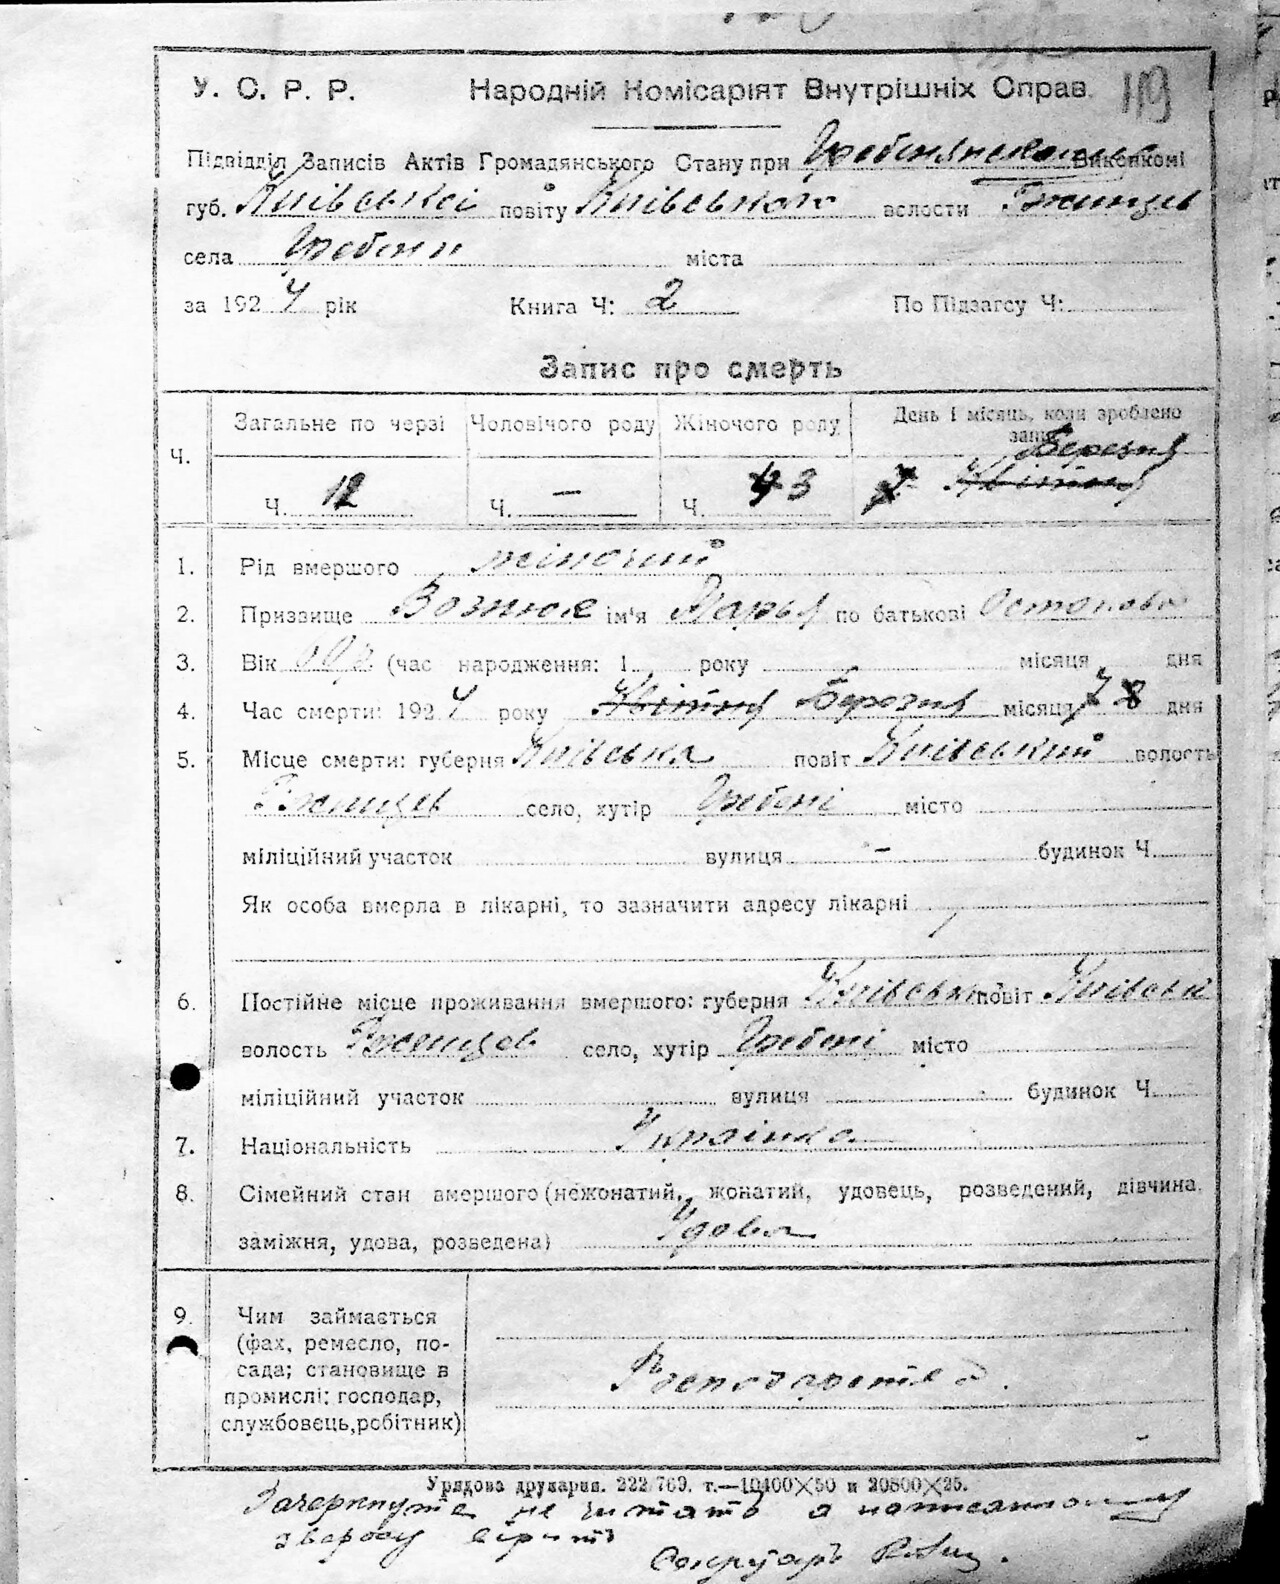 119
У. С. Р. Р. Народній Комісаріят Внутрішніх Справ.
Підвідділ Записів Актів Громадянського Стану при Гребенянському Виконкомі
губ. Київської повіту Київського волости Ржищев
села Гребени міста
за 1924 рік Книга Ч: 2 По Підзагсу Ч:
Запис про смерть
Ч. Загальне по черзі Чоловічого роду Жіночого роду День і місяць, коли зроблено запис
Березня
Ч. 12 Ч. — Ч. 3 Квітня
1. Рід вмершого жіночий
2. Призвище Вознюк ім'я Марья по батькові Остапова
3. Вік (час народження: 1 року місяця дня
4. Час смерти: 1924 року Квітня Березня місяця 7 8 дня
5. Місце смерти: губерня Київська повіт Київський волость
Ржищев село, хутір Гребені місто
міліційний участок вулиця – будинок Ч.
Як особа вмерла в лікарні, то зазначити адресу лікарні
6. Постійне місце проживання вмершого: губерня Київська повіт Київськ
волость Ржищев село, хутір Гребені місто
міліційний участок вулиця будинок Ч.
7. Національність Українка
8. Сімейний стан вмершого (нежонатий, жонатий, удовець, розведений, дівчина,
заміжня, удова, розведена) Удова
9. Чим займається
(фах, ремесло, по-
сада; становище в
промислі: господар,
службовець, робітник)
Урядова друкарня. 222/769. т.—10400×50 и 20800×25.
Зачеркнуте не читать а написанному
зверху вірить
Секрутарь